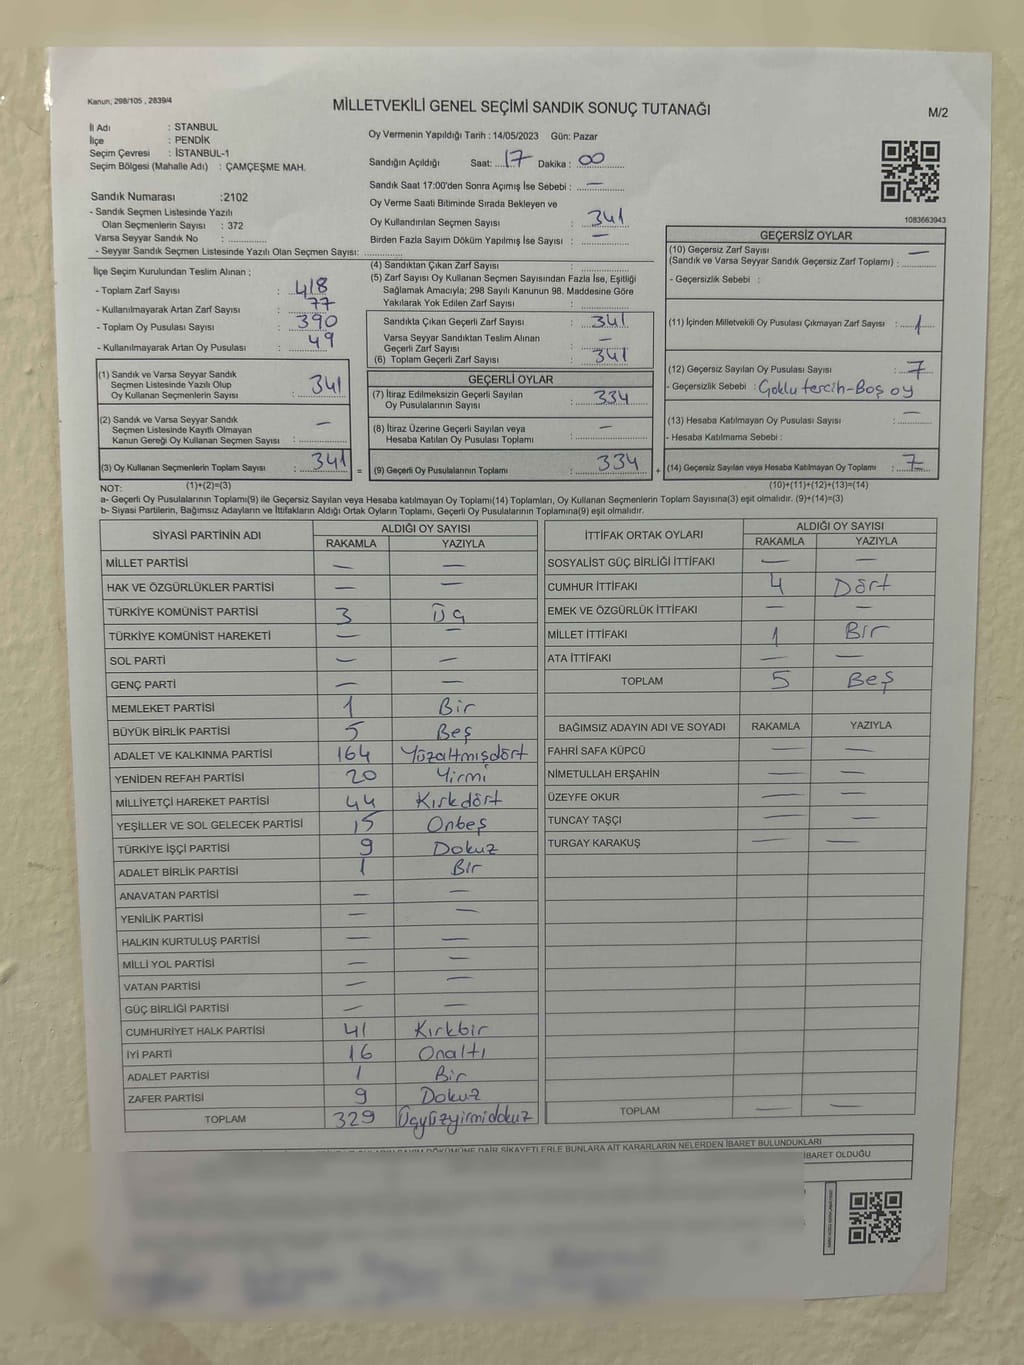 Kanun; 298/105 , 2839/4
MİLLETVEKİLİ GENEL SEÇİMİ SANDIK SONUÇ TUTANAĞI
M/2
İl Adı : STANBUL
İlçe : PENDİK
Seçim Çevresi : İSTANBUL-1
Seçim Bölgesi (Mahalle Adı) : ÇAMÇEŞME MAH.
Sandık Numarası :2102
- Sandık Seçmen Listesinde Yazılı
Olan Seçmenlerin Sayısı : 372
Varsa Seyyar Sandık No :
- Seyyar Sandık Seçmen Listesinde Yazılı Olan Seçmen Sayısı:
Oy Vermenin Yapıldığı Tarih : 14/05/2023 Gün: Pazar
Sandığın Açıldığı Saat: 17 Dakika : 00
Sandık Saat 17:00'den Sonra Açımış İse Sebebi : —
Oy Verme Saati Bitiminde Sırada Bekleyen ve
Oy Kullandırılan Seçmen Sayısı : 341
Birden Fazla Sayım Döküm Yapılmış İse Sayısı : —
1083663943
İlçe Seçim Kurulundan Teslim Alınan ;
- Toplam Zarf Sayısı : 418
- Kullanılmayarak Artan Zarf Sayısı : 77
- Toplam Oy Pusulası Sayısı : 390
- Kullanılmayarak Artan Oy Pusulası : 49
(1) Sandık ve Varsa Seyyar Sandık
Seçmen Listesinde Yazılı Olup
Oy Kullanan Seçmenlerin Sayısı : 341
(2) Sandık ve Varsa Seyyar Sandık
Seçmen Listesinde Kayıtlı Olmayan
Kanun Gereği Oy Kullanan Seçmen Sayısı : —
(3) Oy Kullanan Seçmenlerin Toplam Sayısı : 341
(4) Sandıktan Çıkan Zarf Sayısı :
(5) Zarf Sayısı Oy Kullanan Seçmen Sayısından Fazla İse, Eşitliği
Sağlamak Amacıyla; 298 Sayılı Kanunun 98. Maddesine Göre
Yakılarak Yok Edilen Zarf Sayısı :
Sandıkta Çıkan Geçerli Zarf Sayısı : 341
Varsa Seyyar Sandıktan Teslim Alınan
Geçerli Zarf Sayısı : —
(6) Toplam Geçerli Zarf Sayısı : 341
GEÇERLİ OYLAR
(7) İtiraz Edilmeksizin Geçerli Sayılan
Oy Pusulalarının Sayısı : 334
(8) İtiraz Üzerine Geçerli Sayılan veya
Hesaba Katılan Oy Pusulası Toplamı : —
= (9) Geçerli Oy Pusulalarının Toplamı : 334
GEÇERSİZ OYLAR
(10) Geçersiz Zarf Sayısı
(Sandık ve Varsa Seyyar Sandık Geçersiz Zarf Toplamı) : —
- Geçersizlik Sebebi :
(11) İçinden Milletvekili Oy Pusulası Çıkmayan Zarf Sayısı : 1
(12) Geçersiz Sayılan Oy Pusulası Sayısı : 7
- Geçersizlik Sebebi : Çoklu tercih-Boş oy
(13) Hesaba Katılmayan Oy Pusulası Sayısı : —
- Hesaba Katılmama Sebebi :
+ (14) Geçersiz Sayılan veya Hesaba Katılmayan Oy Toplamı : 7
NOT: (1)+(2)=(3)
(10)+(11)+(12)+(13)=(14)
a- Geçerli Oy Pusulalarının Toplamı(9) ile Geçersiz Sayılan veya Hesaba katılmayan Oy Toplamı(14) Toplamları, Oy Kullanan Seçmenlerin Toplam Sayısına(3) eşit olmalıdır. (9)+(14)=(3)
b- Siyasi Partilerin, Bağımsız Adayların ve İttifakların Aldığı Ortak Oyların Toplamı, Geçerli Oy Pusulalarının Toplamına(9) eşit olmalıdır.
SİYASİ PARTİNİN ADI ALDIĞI OY SAYISI
RAKAMLA YAZIYLA
MİLLET PARTİSİ — —
HAK VE ÖZGÜRLÜKLER PARTİSİ — —
TÜRKİYE KOMÜNİST PARTİSİ 3 Üç
TÜRKİYE KOMÜNİST HAREKETİ — —
SOL PARTİ — —
GENÇ PARTİ — —
MEMLEKET PARTİSİ 1 Bir
BÜYÜK BİRLİK PARTİSİ 5 Beş
ADALET VE KALKINMA PARTİSİ 164 Yüzaltmışdört
YENİDEN REFAH PARTİSİ 20 Yirmi
MİLLİYETÇİ HAREKET PARTİSİ 44 Kırkdört
YEŞİLLER VE SOL GELECEK PARTİSİ 15 Onbeş
TÜRKİYE İŞÇİ PARTİSİ 9 Dokuz
ADALET BİRLİK PARTİSİ 1 Bir
ANAVATAN PARTİSİ — —
YENİLİK PARTİSİ — —
HALKIN KURTULUŞ PARTİSİ — —
MİLLİ YOL PARTİSİ — —
VATAN PARTİSİ — —
GÜÇ BİRLİĞİ PARTİSİ — —
CUMHURİYET HALK PARTİSİ 41 Kırkbir
İYİ PARTİ 16 Onaltı
ADALET PARTİSİ 1 Bir
ZAFER PARTİSİ 9 Dokuz
TOPLAM 329 Üçyüzyirmidokuz
İTTİFAK ORTAK OYLARI ALDIĞI OY SAYISI
RAKAMLA YAZIYLA
SOSYALİST GÜÇ BİRLİĞİ İTTİFAKI — —
CUMHUR İTTİFAKI 4 Dört
EMEK VE ÖZGÜRLÜK İTTİFAKI — —
MİLLET İTTİFAKI 1 Bir
ATA İTTİFAKI — —
TOPLAM 5 Beş
BAĞIMSIZ ADAYIN ADI VE SOYADI RAKAMLA YAZIYLA
FAHRİ SAFA KÜPCÜ — —
NİMETULLAH ERŞAHİN — —
ÜZEYFE OKUR — —
TUNCAY TAŞÇI — —
TURGAY KARAKUŞ — —
TOPLAM — —
DAİR ŞİKAYETLERLE BUNLARA AİT KARARLARIN NELERDEN İBARET BULUNDUKLARI
İBARET OLDUĞU